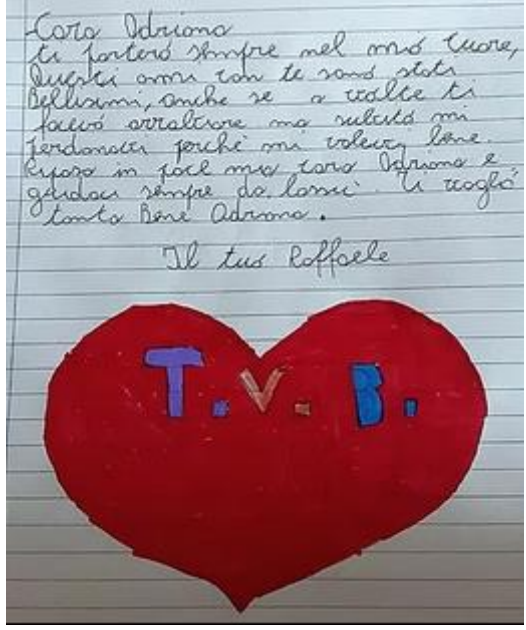 Cara Adriana
ti porterò sempre nel mio cuore,
Questi anni con te sono stati
Bellissimi, anche se a volte ti
facevo arrabbiare ma subito mi
perdonavi perché mi volevi bene.
Riposa in pace mia cara Adriana e
guidaci sempre da lassù. Ti voglio
tanto Bene Adriana.
Il tuo Raffaele
T.V.B.